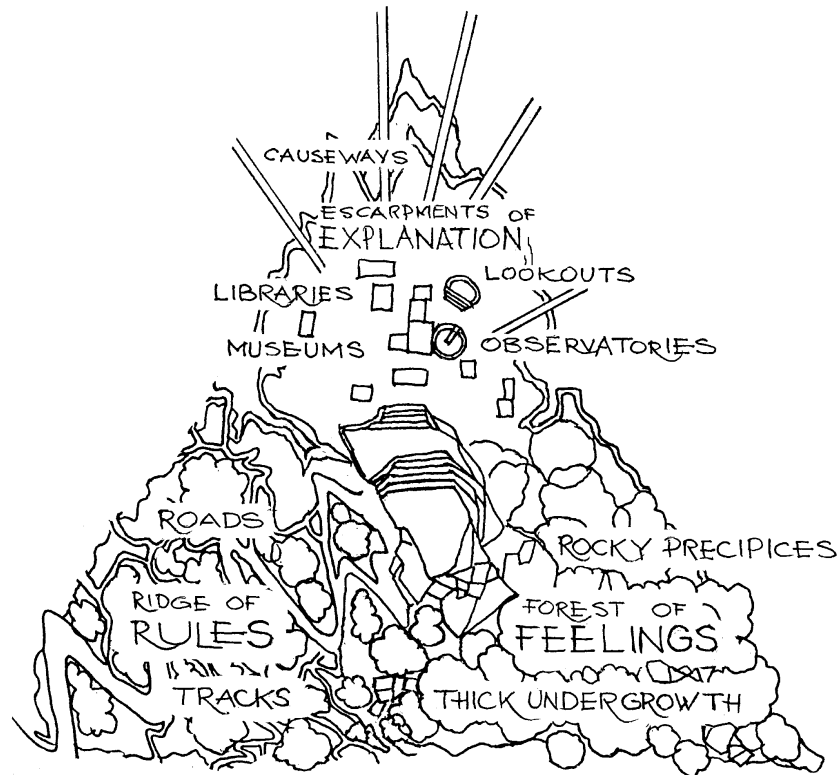 CAUSEWAYS
ESCARPMENTS OF
EXPLANATION
LOOKOUTS
LIBRARIES
MUSEUMS
OBSERVATORIES
ROADS
ROCKY PRECIPICES
RIDGE OF
RULES
FOREST OF
FEELINGS
TRACKS
THICK UNDERGROWTH